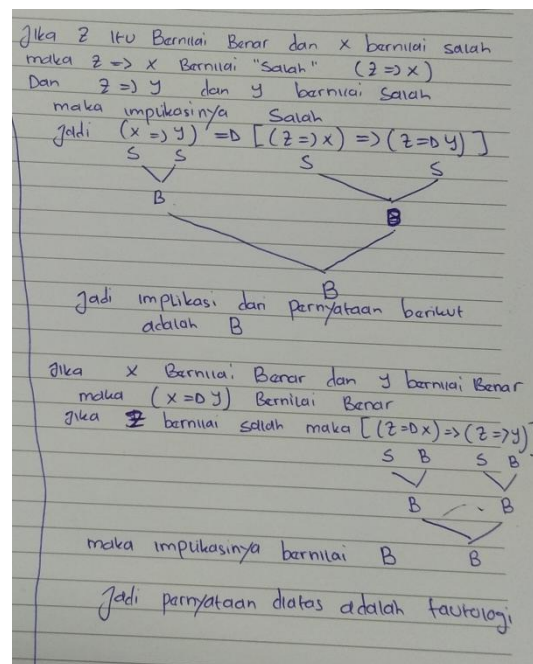 Jika Z itu Bernilai Benar dan x bernilai salah
maka Z => x Bernilai "Salah" (Z => x)
Dan Z => y dan y bernilai salah
maka implikasinya Salah
Jadi (x => y) => [(Z => x) => (Z => y)]
S S S S
B B
B
Jadi implikasi dari pernyataan berikut
adalah B
Jika x Bernilai Benar dan y bernilai Benar
maka (x => y) Bernilai Benar
Jika Z bernilai salah maka [(Z => x) => (Z => y)]
S B S B
B B
maka implikasinya bernilai B B
Jadi pernyataan diatas adalah tautologi